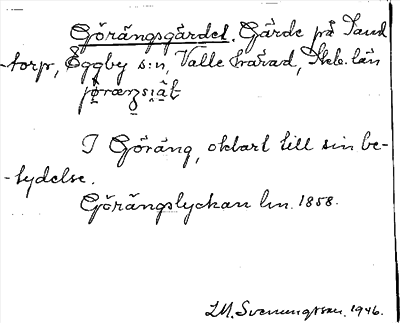 Görängsgärdet. Gärde på Sand
-torp, Eggby s:n, Valle härad, Skb. län
I Göräng, oklart till sin be-
-tydelse.
Görängslyckan lm. 1858.
I.M. Svenungsson, 1946.